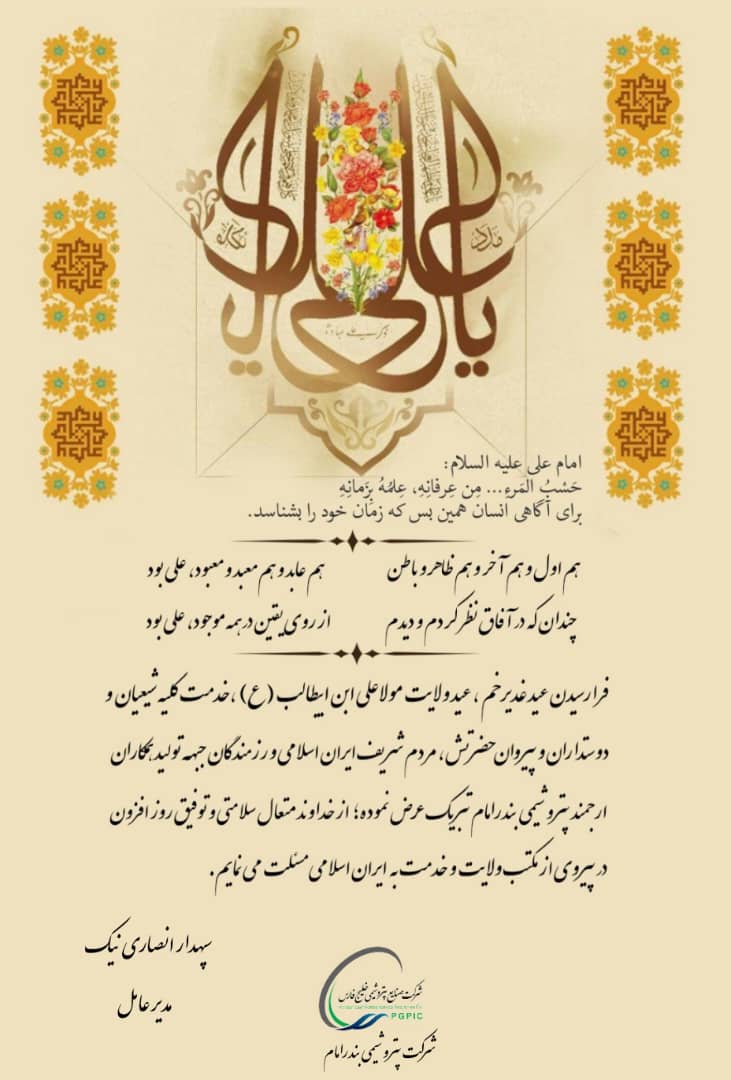 یا علی
مدد
ذکر علی عبادة
امام علی علیه السلام:
حَسْبُ المَرءِ... مِن عِرفانِهِ، عِلمُهُ بِزَمانِهِ
برای آگاهی انسان همین بس که زمان خود را بشناسد.
هم اول و هم آخر و هم ظاهر و باطن هم عابد و هم معبد و معبود، علی بود
چندان که در آفاق نظر کردم و دیدم از روی یقین در همه موجود، علی بود
فرا رسیدن عید غدیر خم ، عید ولایت مولا علی ابن ابیطالب (ع) ، خدمت کلیه شیعیان و
دوستداران و پیروان حضرتش ، مردم شریف ایران اسلامی و رزمندگان جبهه تولید همکاران
ارجمند پتروشیمی بندرامام تبریک عرض نموده؛ از خداوند متعال سلامتی و توفیق روز افزون
در پیروی از مکتب ولایت و خدمت به ایران اسلامی مسئلت می نمایم .
سپهدار انصاری نیک
مدیر عامل
شرکت صنایع پتروشیمی خلیج فارس
PGPIC
شرکت پتروشیمی بندرامام